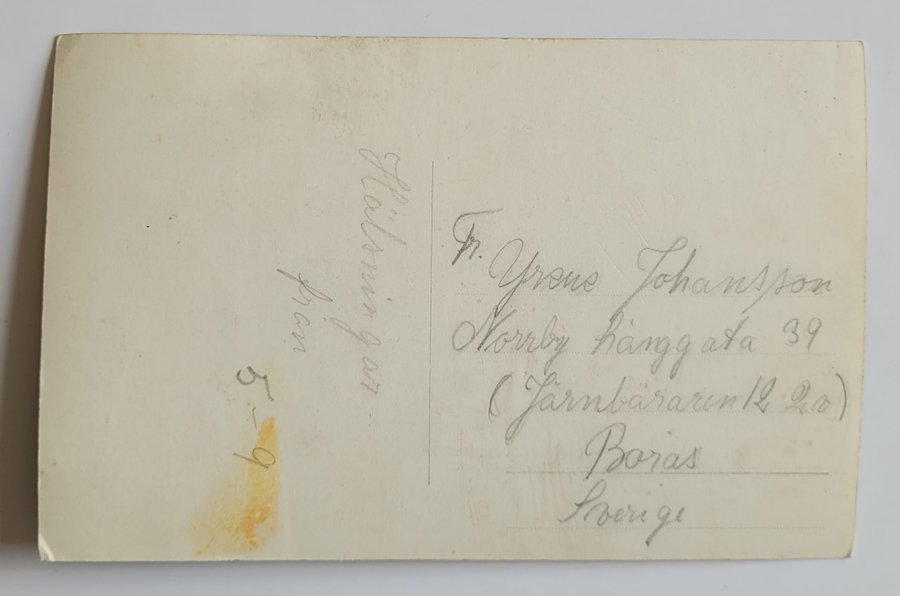 Hälsningar
från
5-9
Fr.
Yrene Johansson
Norrby långgata 39
(Järnbäraren 12 2v)
Borås
Sverige